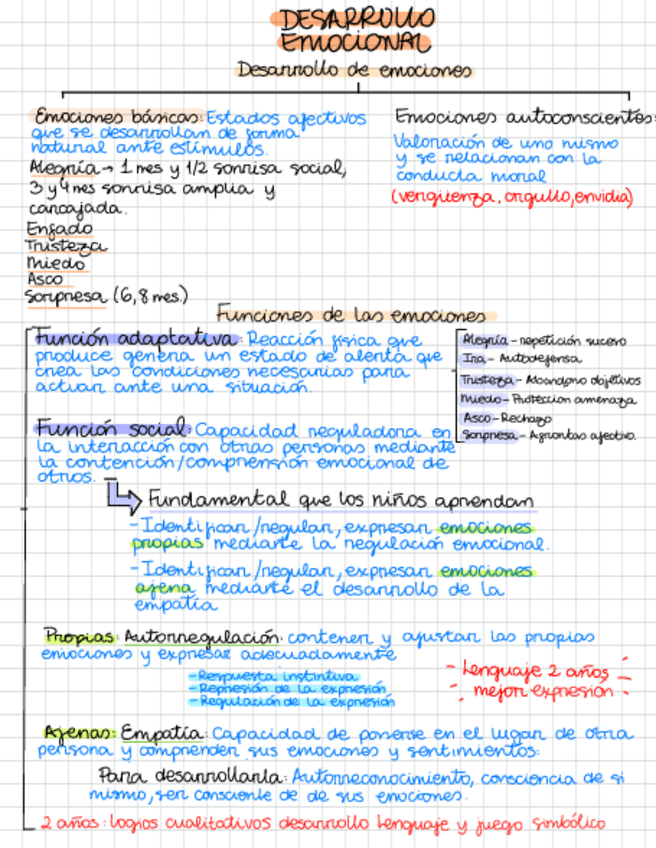 DESARROLLO
EMOCIONAL
Desarrollo de emociones
Emociones básicas: Estados afectivos
que se desarrollan de forma
natural ante estímulos.
Alegría → 1 mes y 1/2 sonrisa social,
3 y 4 mes sonrisa amplia y
carcajada.
Enfado
Tristeza
Miedo
Asco
Sorpresa (6,8 mes.)
Emociones autoconscientes:
Valoración de uno mismo
y se relacionan con la
conducta moral
(vergüenza, orgullo, envidia)
Funciones de las emociones
Función adaptativa: Reacción física que
produce genera un estado de alerta que
crea las condiciones necesarias para
actuar ante una situación.
Alegría - repetición suceso
Ira - Autodefensa
Tristeza - Abandono objetivos
Miedo - Protección amenaza
Asco - Rechazo
Sorpresa - Afrontas afectivo.
Función social: Capacidad reguladora en
la interacción con otras personas mediante
la contención/comprensión emocional de
otros.
Fundamental que los niños aprendan
- Identificar/regular, expresar emociones
propias mediante la regulación emocional.
- Identificar/regular, expresar emociones
ajena mediante el desarrollo de la
empatía
Propias: Autorregulación: contener y ajustar las propias
emociones y expresar adecuadamente
- Respuesta instintiva
- Represión de la expresión
- Regulación de la expresión
Lenguaje 2 años
mejor expresión
Ajenas: Empatía: Capacidad de ponerse en el lugar de otra
persona y comprender sus emociones y sentimientos.
Para desarrollarla: Autorreconocimiento, consciencia de si
mismo, ser consciente de de sus emociones.
2 años: logros cualitativos desarrollo lenguaje y juego simbólico